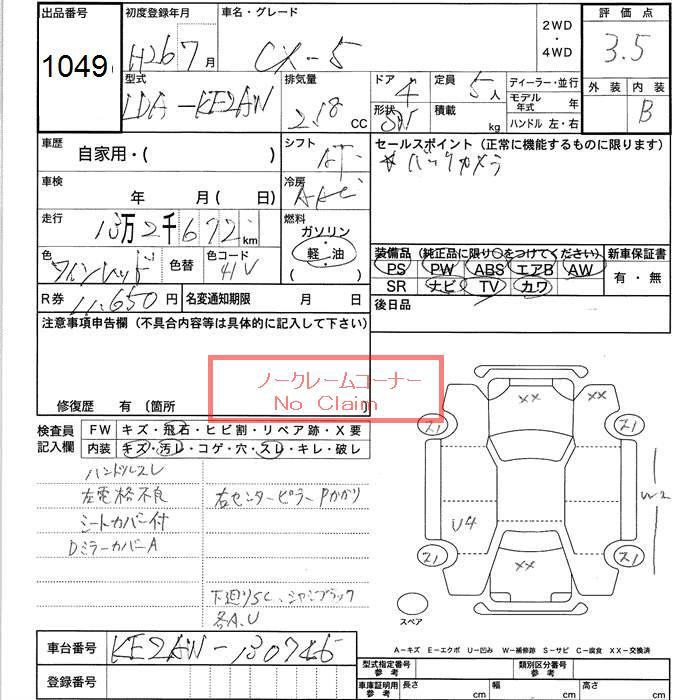 出品番号 初度登録年月 車名・グレード 2WD・4WD 評価点
1049 H26 7月 CX-5 3.5
型式 排気量 ドア 4 定員 5人 ディーラー・並行 外装 内装
LDA-KE2AW CC 形状 積載 kg モデル年式 年 B
ハンドル 左・右
車歴 自家用・( ) シフト AT セールスポイント (正常に機能するものに限ります)
☆バックカメラ
車検 年 月 ( 日) 冷房 AAC
走行 13万2千672 km 燃料 ガソリン 軽・油 ( )
装備品 (純正品に限り○をつけてください) 新車保証書
色 ワインレッド 色替 色コード 41V
PS PW ABS エアB AW 有・無
SR ナビ TV カワ
R券 11,650円 名変通知期限 月 日 後日品
注意事項申告欄 (不具合内容等は具体的に記入して下さい)
ノークレームコーナー
No Claim
修復歴 有 〔箇所
検査員記入欄 FW キズ・飛石・ヒビ割・リペア跡・X要
内装 キズ・汚レ・コゲ・穴・スレ・キレ・破レ
ハンドルスレ
左電格不良 右センターピラーPかがり
シートカバー付
DミラーカバーA
下廻りSC、シャシブラック
各A.U
XX XX
ス1 ス1
U4 W2
ス1 XX ス1
スペア
A-キズ E-エクボ U-凹み W-補修跡 S-サビ C-腐食 XX-交換済
車台番号 KE2AW-130746
登録番号
型式指定番号 参考 類別区分番号 参考
車庫証明用 参考 長さ cm 幅 cm 高さ cm